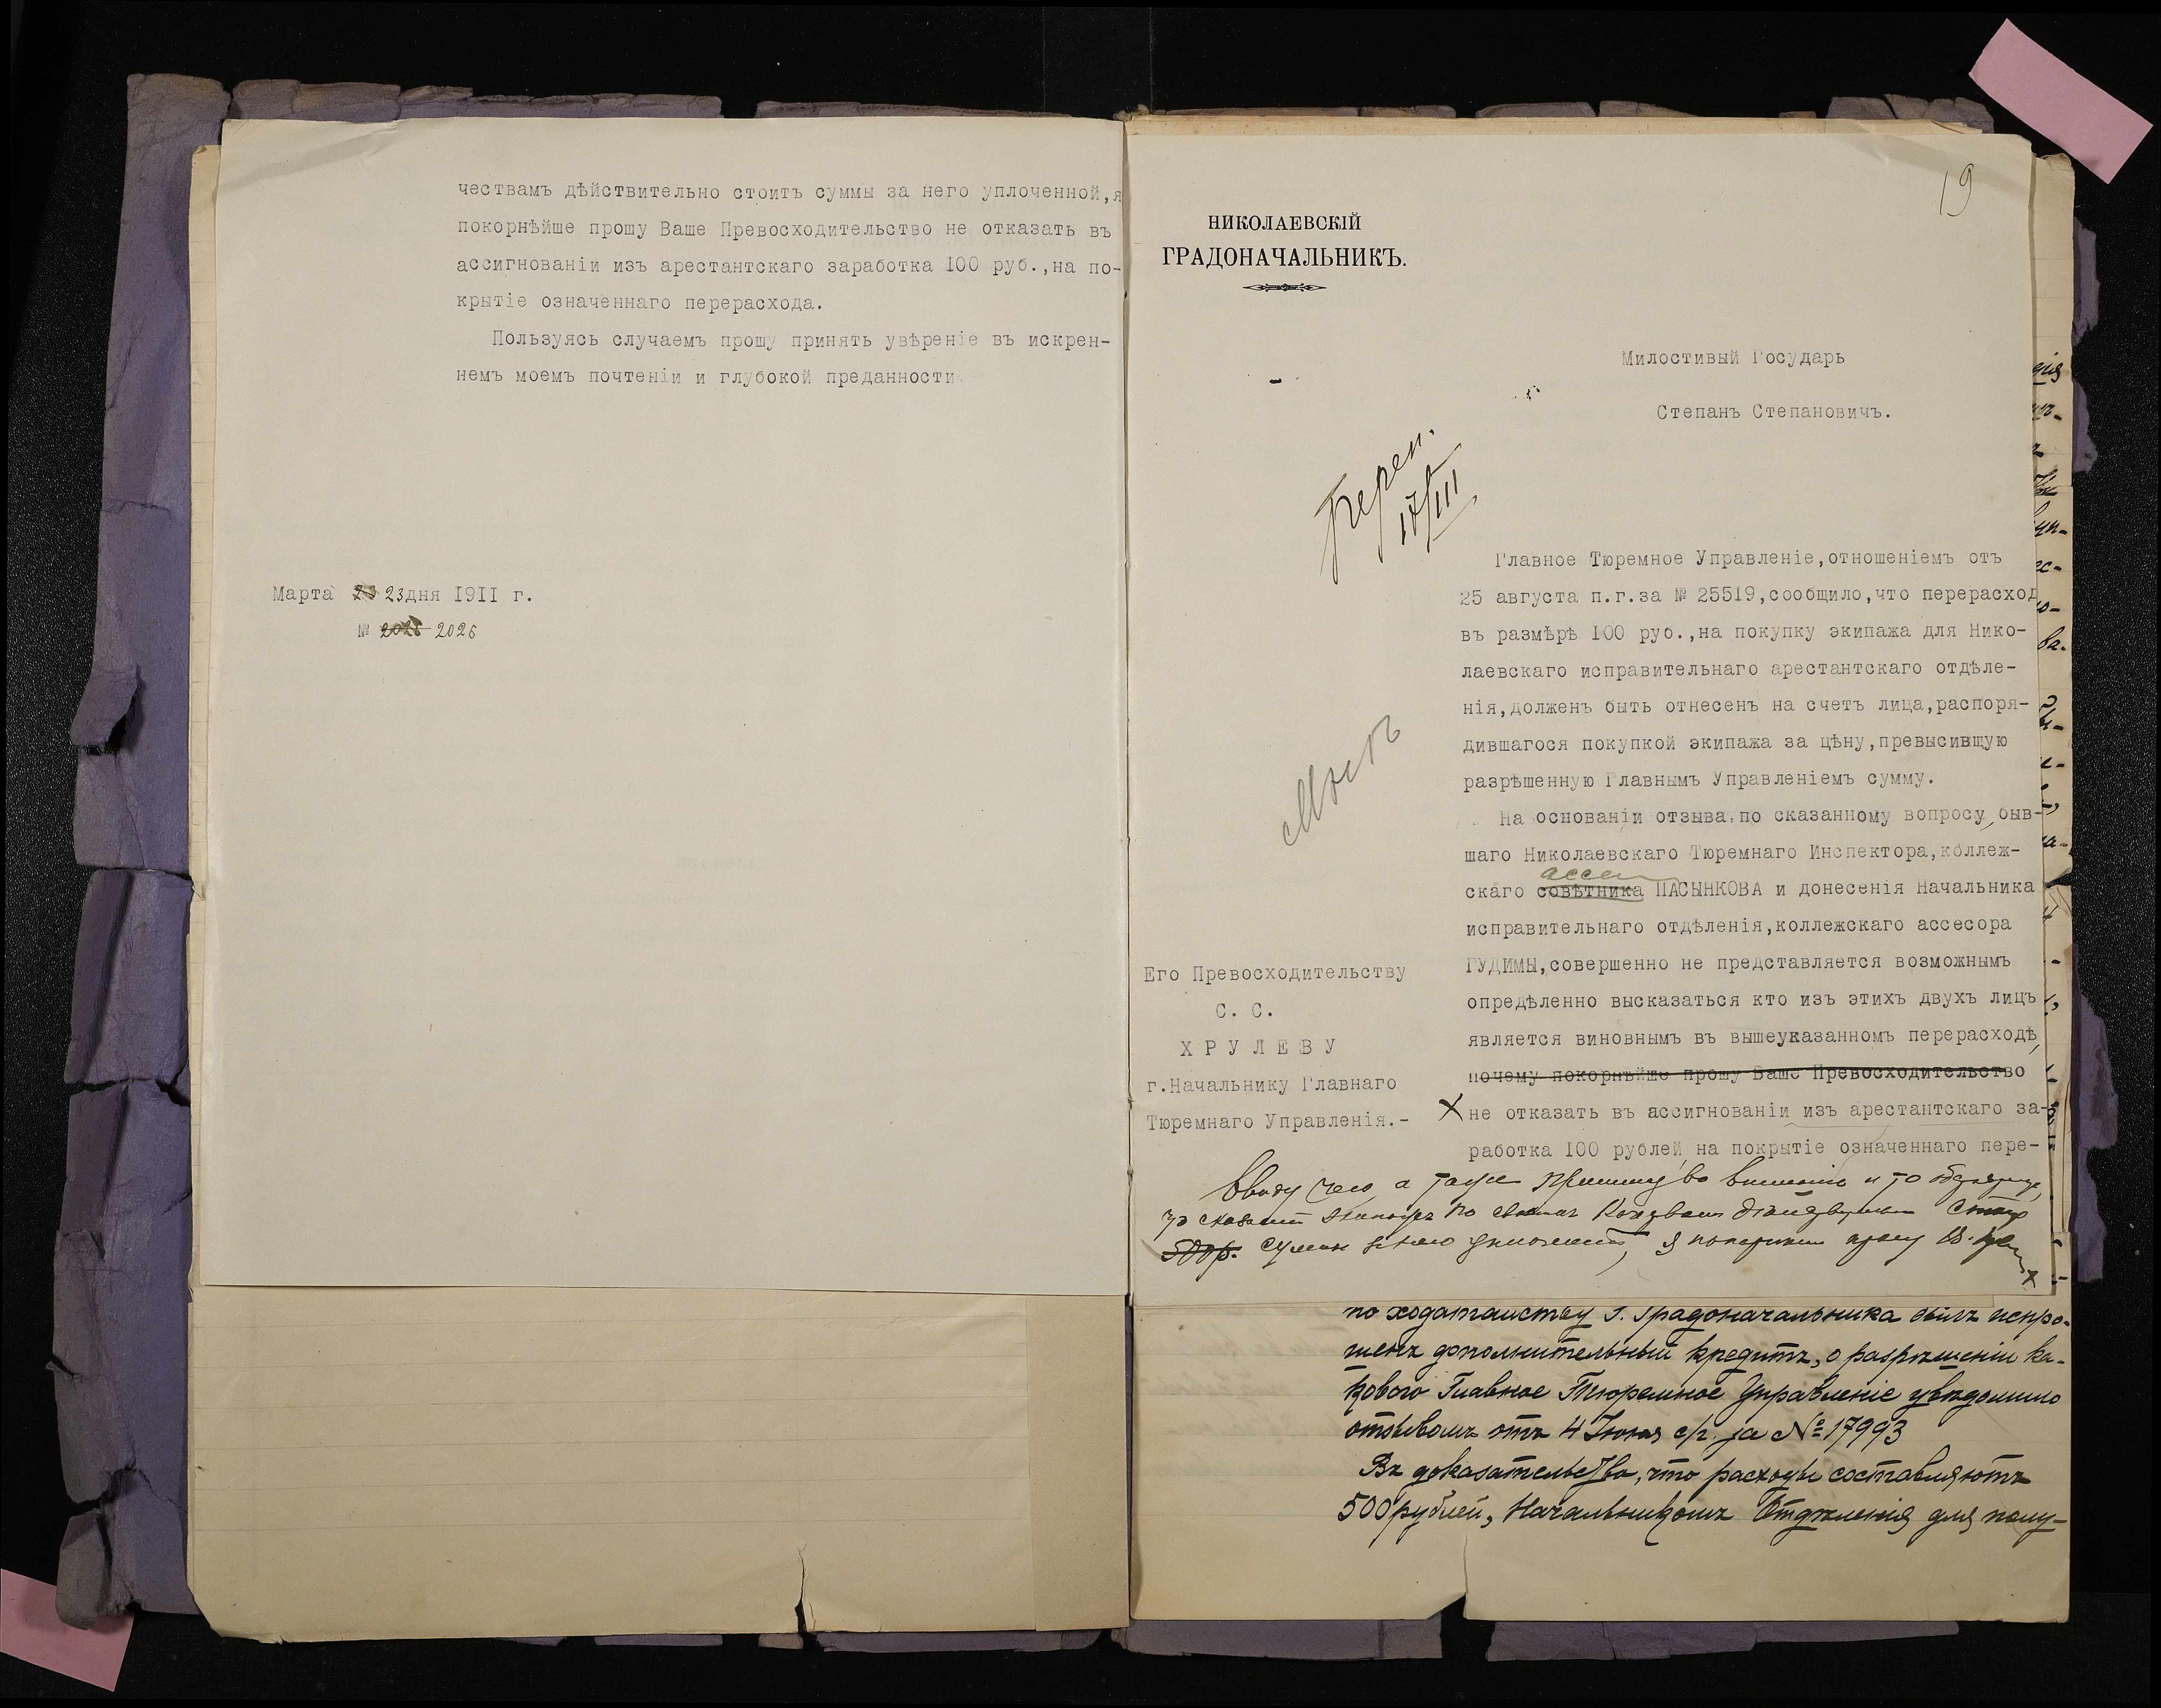 чествамъ дѣйствительно стоитъ суммы за него уплоченной,я
покорнѣйше прошу Ваше Превосходительство не отказать въ
ассигнованіи изъ арестантскаго заработка 100 руб.,на по-
крытіе означеннаго перерасхода.
Пользуясь случаемъ прошу принять увѣреніе въ искрен-
немъ моемъ почтеніи и глубокой преданности
Марта 23 дня 1911 г.
№ 2026 2026
19
НИКОЛАЕВСКІЙ
ГРАДОНАЧАЛЬНИКЪ.
Милостивый Государь
Степанъ Степановичъ.
Переп.
17/III
Главное Тюремное Управленіе,отношеніемъ отъ
25 августа п.г.за № 25519,сообщило,что перерасход
въ размѣрѣ 100 руб.,на покупку экипажа для Нико-
лаевскаго исправительнаго арестантскаго отдѣле-
нія,долженъ быть отнесенъ на счетъ лица,распоря-
дившагося покупкой экипажа за цѣну,превысившую
разрѣшенную Главнымъ Управленіемъ сумму.
На основаніи отзыва,по сказанному вопросу,быв-
шаго Николаевскаго Тюремнаго Инспектора,коллеж-
ассе
скаго совѣтника ПАСЫНКОВА и донесенія Начальника
исправительнаго отдѣленія,коллежскаго ассесора
ГУДИМЫ,совершенно не представляется возможнымъ
опредѣленно высказаться кто изъ этихъ двухъ лицъ
является виновнымъ въ вышеуказанномъ перерасходѣ,
почему покорнѣйше прошу Ваше Превосходительство
не отказать въ ассигнованіи изъ арестантскаго за-
работка 100 рублей на покрытіе означеннаго пере-
Его Превосходительству
С. С.
ХРУЛЕВУ
г.Начальнику Главнаго
Тюремнаго Управленія.-
Ввиду чего, а также принимая во вниманіе и то
по своимъ
500 р. суммы за него уплоченной, я покорнѣйше прошу В.
по ходатайству г. Градоначальника былъ испро-
шенъ дополнительный кредитъ, о разрѣшеніи ка-
кового Главное Тюремное Управленіе увѣдомило
отзывомъ отъ 4 Іюня с/г. за № 17993
Въ доказательство, что расходы составляютъ
500 рублей, Начальникомъ Отдѣленія для полу-